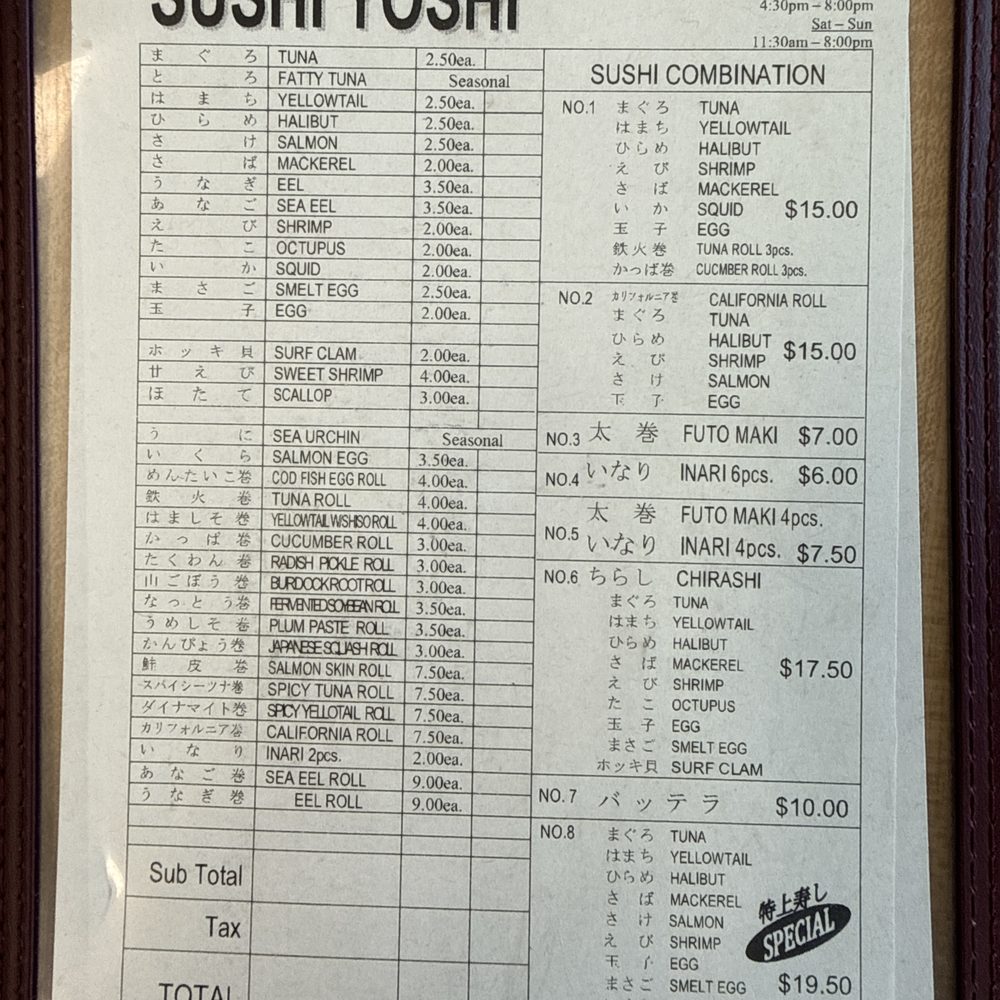 SUSHI YOSHI
4:30pm – 8:00pm
Sat – Sun
11:30am – 8:00pm
まぐろ TUNA 2.50ea.
とろ FATTY TUNA Seasonal
はまち YELLOWTAIL 2.50ea.
ひらめ HALIBUT 2.50ea.
さけ SALMON 2.50ea.
さば MACKEREL 2.00ea.
うなぎ EEL 3.50ea.
あなご SEA EEL 3.50ea.
えび SHRIMP 2.00ea.
たこ OCTUPUS 2.00ea.
いか SQUID 2.00ea.
まさご SMELT EGG 2.50ea.
玉子 EGG 2.00ea.
ホッキ貝 SURF CLAM 2.00ea.
甘えび SWEET SHRIMP 4.00ea.
ほたて SCALLOP 3.00ea.
うに SEA URCHIN Seasonal
いくら SALMON EGG 3.50ea.
めんたいこ巻 COD FISH EGG ROLL 4.00ea.
鉄火巻 TUNA ROLL 4.00ea.
はましそ巻 YELLOWTAIL W/SHISO ROLL 4.00ea.
かっぱ巻 CUCUMBER ROLL 3.00ea.
たくわん巻 RADISH PICKLE ROLL 3.00ea.
山ごぼう巻 BURDOCK ROOT ROLL 3.00ea.
なっとう巻 FERMENTED SOYBEAN ROLL 3.50ea.
うめしそ巻 PLUM PASTE ROLL 3.50ea.
かんぴょう巻 JAPANESE SQUASH ROLL 3.00ea.
鮭皮巻 SALMON SKIN ROLL 7.50ea.
スパイシーツナ巻 SPICY TUNA ROLL 7.50ea.
ダイナマイト巻 SPICY YELLOTAIL ROLL 7.50ea.
カリフォルニア巻 CALIFORNIA ROLL 7.50ea.
いなり INARI 2pcs. 2.00ea.
あなご巻 SEA EEL ROLL 9.00ea.
うなぎ巻 EEL ROLL 9.00ea.
Sub Total
Tax
TOTAL
SUSHI COMBINATION
NO.1 まぐろ TUNA
はまち YELLOWTAIL
ひらめ HALIBUT
えび SHRIMP
さば MACKEREL
いか SQUID $15.00
玉子 EGG
鉄火巻 TUNA ROLL 3pcs.
かっぱ巻 CUCMBER ROLL 3pcs.
NO.2 カリフォルニア巻 CALIFORNIA ROLL
まぐろ TUNA
ひらめ HALIBUT
えび SHRIMP $15.00
さけ SALMON
玉子 EGG
NO.3 太巻 FUTO MAKI $7.00
NO.4 いなり INARI 6pcs. $6.00
NO.5 太巻 FUTO MAKI 4pcs.
いなり INARI 4pcs. $7.50
NO.6 ちらし CHIRASHI
まぐろ TUNA
はまち YELLOWTAIL
ひらめ HALIBUT
さば MACKEREL $17.50
えび SHRIMP
たこ OCTUPUS
玉子 EGG
まさご SMELT EGG
ホッキ貝 SURF CLAM
NO.7 バッテラ $10.00
NO.8 まぐろ TUNA
はまち YELLOWTAIL
ひらめ HALIBUT
さば MACKEREL
さけ SALMON
えび SHRIMP
玉子 EGG
まさご SMELT EGG
特上寿し
SPECIAL
$19.50